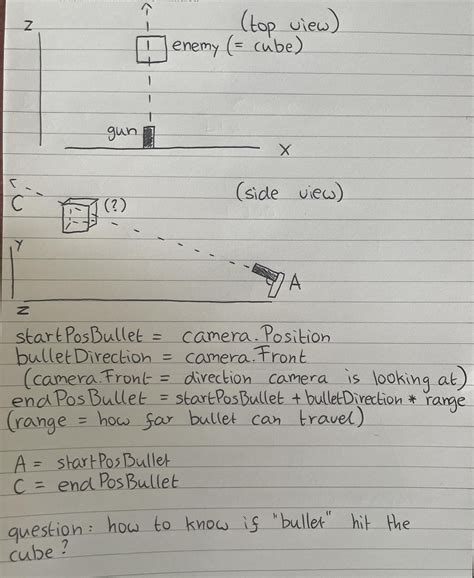 Z
(top view)
enemy (= cube)
gun
X
(side view)
C
(?)
Y
A
Z
startPosBullet = camera.Position
bulletDirection = camera.Front
(camera.Front = direction camera is looking at)
endPosBullet = startPosBullet + bulletDirection * range
(range = how far bullet can travel)
A = startPosBullet
C = endPosBullet
question: how to know if "bullet" hit the
cube?